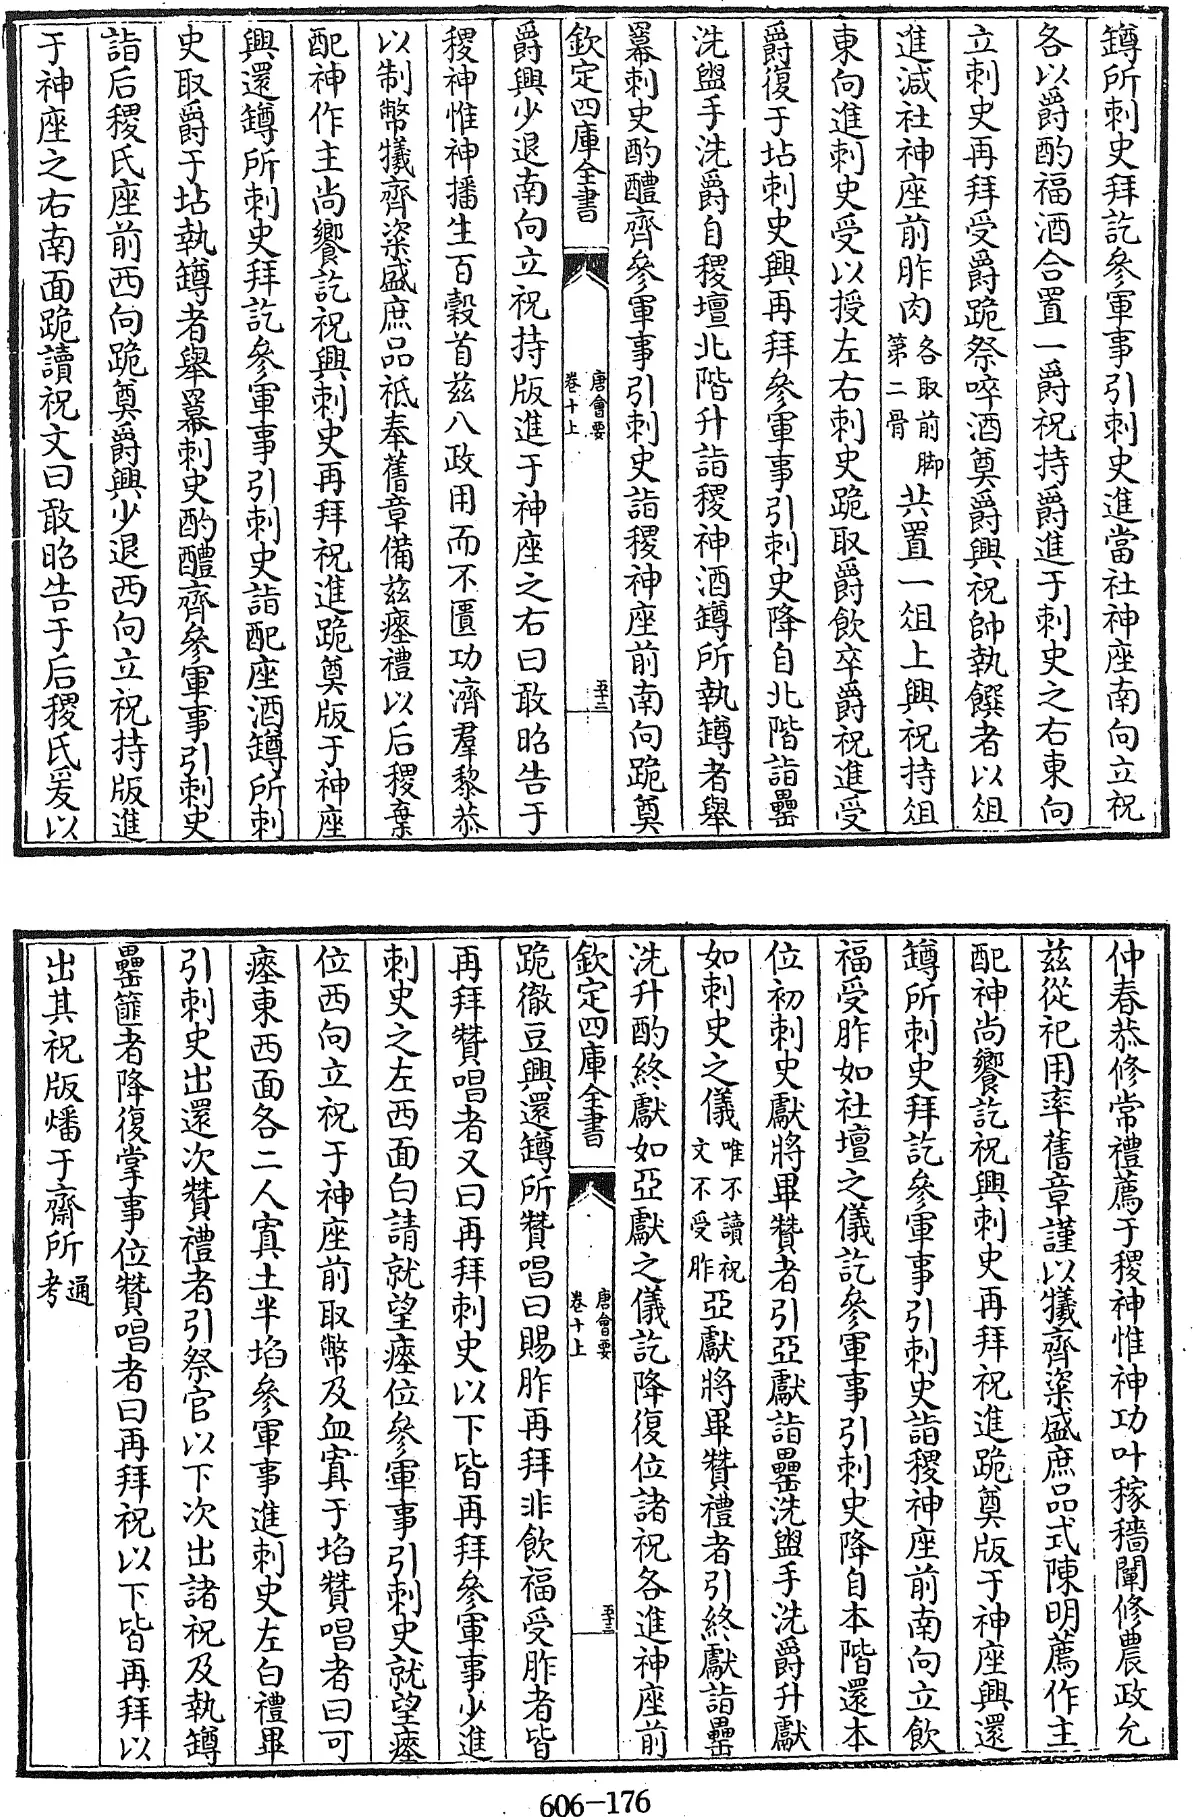 鐏所刺史拜訖參軍事引刺史進當社神座南向立祝
各以爵酌福酒合置一爵祝持爵進于刺史之右東向
立刺史再拜受爵跪祭啐酒奠爵興祝帥執饌者以俎
進減社神座前胙肉各取前脚第二骨共置一俎上興祝持俎
東向進刺史受以授左右刺史跪取爵飲卒爵祝進受
爵復于坫刺史興再拜參軍事引刺史降自北階詣罍
洗盥手洗爵自稷壇北階升詣稷神酒鐏所執鐏者舉
冪刺史酌醴齊參軍事引刺史詣稷神座前南向跪奠
欽定四庫全書
唐會要
卷十上
五十二
爵興少退南向立祝持版進于神座之右曰敢昭告于
稷神惟神播生百穀首兹八政用而不匱功濟羣黎恭
以制幣犧齊粢盛庶品祗奉舊章備兹瘞禮以后稷棄
配神作主尚饗訖祝興刺史再拜祝進跪奠版于神座
興還鐏所刺史拜訖參軍事引刺史詣配座酒鐏所刺
史取爵于坫執鐏者舉冪刺史酌醴齊參軍事引刺史
詣后稷氏座前西向跪奠爵興少退西向立祝持版進
于神座之右南面跪讀祝文曰敢昭告于后稷氏爰以
仲春恭修常禮薦于稷神惟神功叶稼穡闡修農政允
兹從祀用率舊章謹以犧齊粢盛庶品式陳明薦作主
配神尚饗訖祝興刺史再拜祝進跪奠版于神座興還
鐏所刺史拜訖參軍事引刺史詣稷神座前南向立飲
福受胙如社壇之儀訖參軍事引刺史降自本階還本
位初刺史獻將畢贊者引亞獻詣罍洗盥手洗爵升獻
如刺史之儀唯不讀祝文不受胙亞獻將畢贊禮者引終獻詣罍
洗升酌終獻如亞獻之儀訖降復位諸祝各進神座前
欽定四庫全書
唐會要
卷十上
五十三
跪徹豆興還鐏所贊唱曰賜胙再拜非飲福受胙者皆
再拜贊唱者又曰再拜刺史以下皆再拜參軍事少進
刺史之左西面白請就望瘞位參軍事引刺史就望瘞
位西向立祝于神座前取幣及血寘于埳贊唱者曰可
瘞東西面各二人寘土半埳參軍事進刺史左白禮畢
引刺史出還次贊禮者引祭官以下次出諸祝及執鐏
罍篚者降復掌事位贊唱者曰再拜祝以下皆再拜以
出其祝版燔于齋所通考
606-176